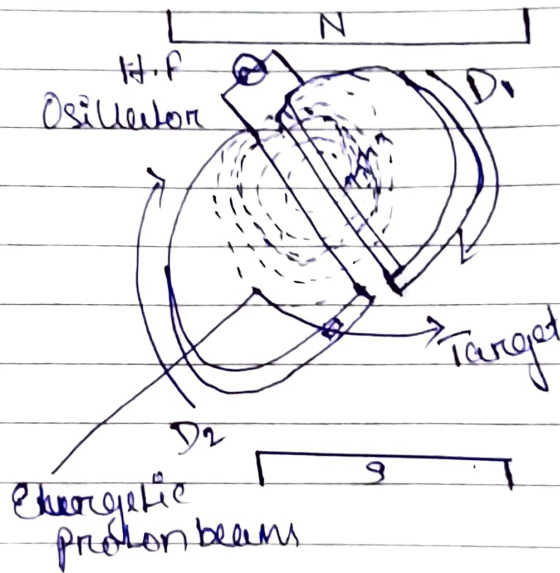 N
H.F
Osillator
D1
Target
D2
S
Energetic
proton beams